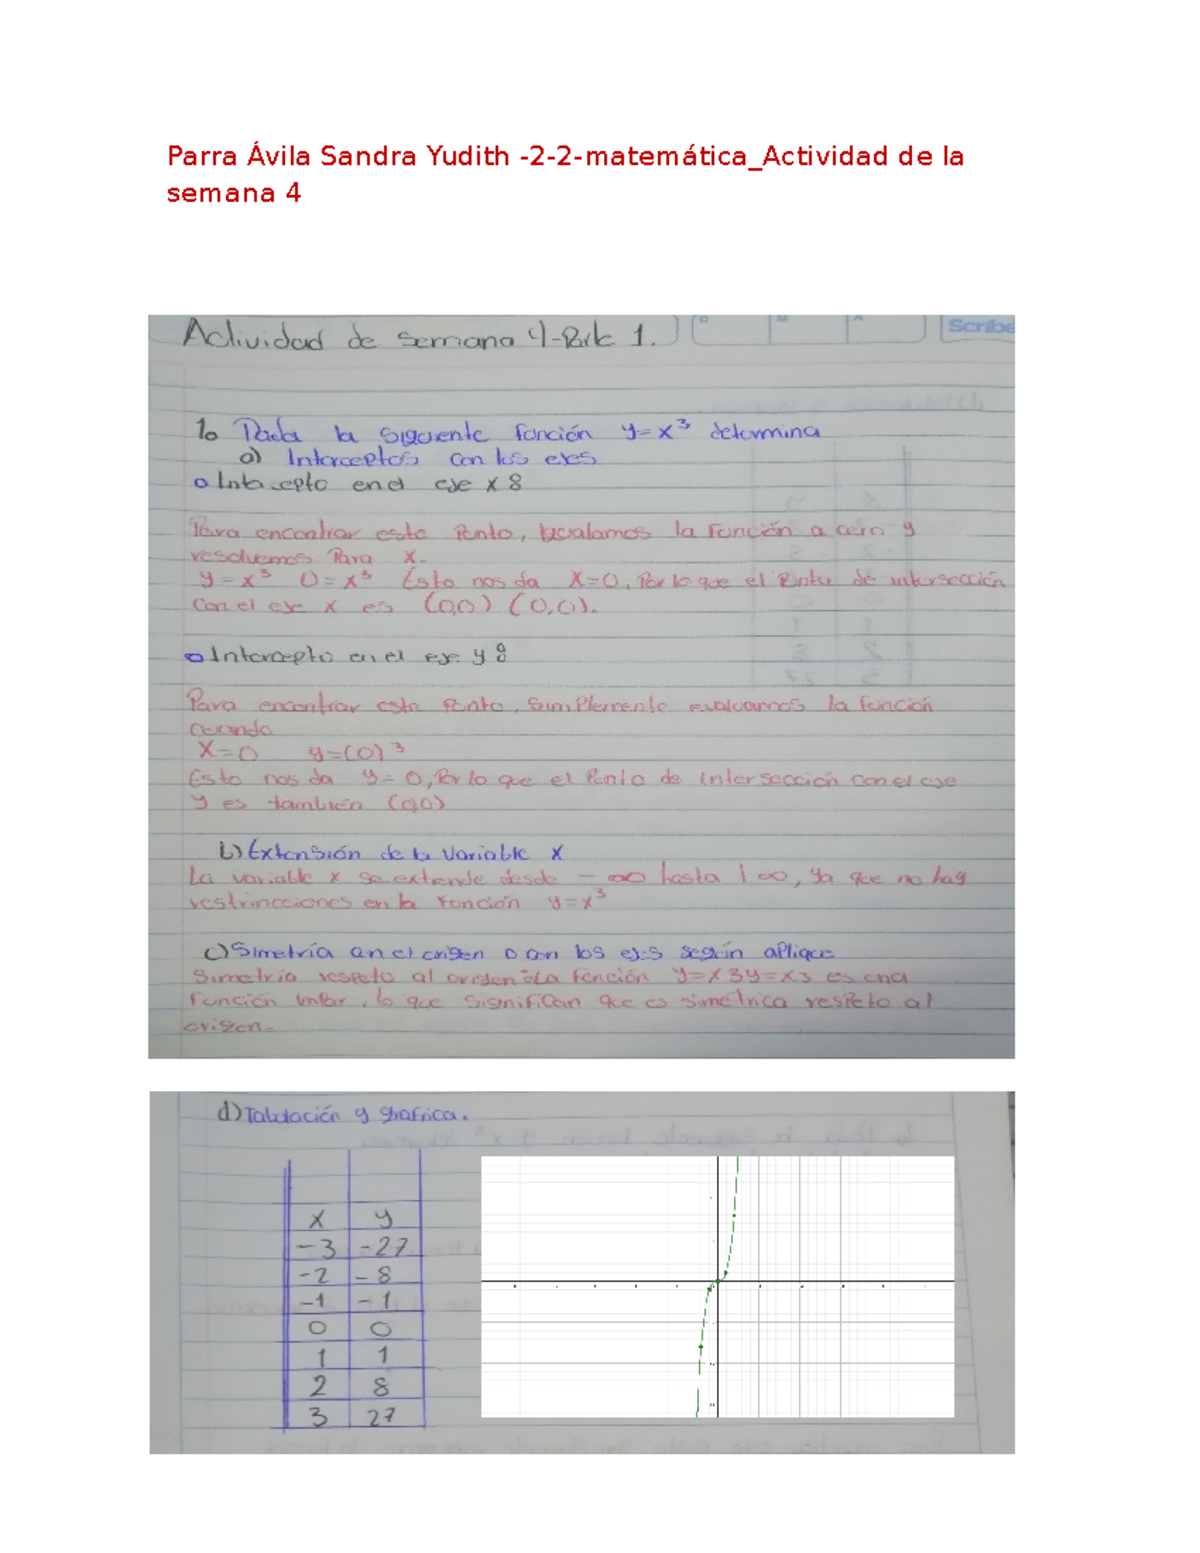 Parra Ávila Sandra Yudith -2-2-matemática_Actividad de la
semana 4
Actividad de semana 4-Parte 1.
D M A Scribe
1. Dada la siguiente función y=x³ determina
a) Interceptos con los ejes
o Intercepto en el eje x 8
Para encontrar este Punto, igualamos la función a cero y
resolvemos Para x.
y=x³ 0=x³ Ésto nos da x=0, Por lo que el Punto de intersección
con el eje x es (0,0) (0,0).
o Intercepto en el eje y:
Para encontrar este Punto, simplemente evaluamos la función
cuando
x=0 y=(0)³
Esto nos da y=0, Por lo que el Punto de intersección con el eje
y es también (0,0)
b) Extensión de la variable x
La variable x se extiende desde -∞ hasta +∞, ya que no hay
restrincciones en la función y=x³
c) Simetría an el origen o con los ejes según aplique
Simetría respeto al origen: La función y=x3y=x3 es una
función impar, lo que significan que es simétrica respeto al
origen.
d) Tabulación y grafica.
x y
-3 -27
-2 -8
-1 -1
0 0
1 1
2 8
3 27